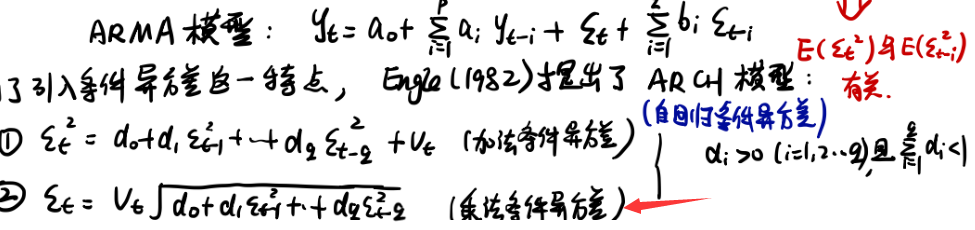 ARMA模型： y_t = a_0 + Σ_{i=1}^{p} a_i y_{t-i} + ε_t + Σ_{i=1} b_i ε_{t-i}
E(ε_t²)与E(ε_{t-i}²)
有关.
了引入条件异方差这一特点， Engle(1982)提出了 ARCH 模型：
(自回归条件异方差)
① ε_t² = α_0+α_1 ε_{t-1}² + ·· + α_q ε_{t-q}² + v_t (加法条件异方差)
α_i > 0 (i=1,2··q),且 Σ_{i=1}^{q} α_i < 1
② ε_t = v_t √(α_0+α_1ε_{t-1}²+··+α_qε_{t-q}²) (乘法条件异方差)